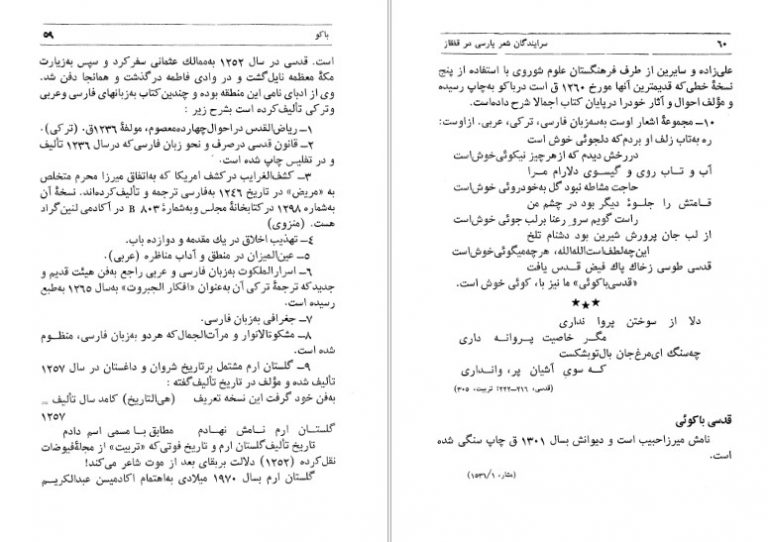 باکو ۵۹
است. قدسی در سال ۱۲۵۲ به‌ممالك عثمانی سفرکرد و سپس به‌زیارت
مکهٔ معظمه نایل‌گشت و در وادی فاطمه درگذشت و همانجا دفن شد.
وی از ادبای نامی این منطقه بوده و چندین‌کتاب به‌زبانهای فارسی‌وعربی
و ترکی تألیف‌کرده است بشرح زیر :
۱ــ ریاض‌القدس دراحوال‌چهارده‌معصوم، مولفهٔ ۱۲۳۶ق. (ترکی).
۲ــ قانون قدسی درصرف و نحو زبان فارسی‌که درسال ۱۲۳۶ تألیف
و در تفلیس چاپ شده است.
۳ــ کشف‌الغرایب درکشف امریکا که به‌اتفاق میرزا محرم متخلص
به «مریض» در تاریخ ۱۲۴۶ به‌فارسی ترجمه و تألیف‌کرده‌اند. نسخهٔ آن
به‌شماره ۱۲۹۸ درکتابخانهٔ مجلس وبه‌شمارهٔ B ۸۰۳ در آکادمی لنین‌گراد
هست. (منزوی)
۴ــ تهذیب اخلاق در یك مقدمه و دوازده باب.
۵ــ عین‌المیزان در منطق و آداب مناظره (عربی).
۶ــ اسرارالملکوت به‌زبان فارسی و عربی راجع به‌فن هیئت قدیم و
جدیدکه ترجمهٔ ترکی آن به‌عنوان «افکار الجبروت» به‌سال ۱۲۶۵ به‌طبع
رسیده است.
۷ــ جغرافی به‌زبان فارسی.
۸ــ مشکوتالانوار و مرآت‌الجمال‌که هردو به‌زبان فارسی، منظوم
شده است.
۹ــ گلستان ارم مشتمل برتاریخ شروان و داغستان در سال ۱۲۵۷
تألیف شده و مؤلف در تاریخ تألیف‌گفته :
به‌فن خود گرفت این نسخه تعریف (هی‌التاریخ) کامد سال تألیف =
۱۲۵۷
گلستان ارم نامش نهادم مطابق با مسمی اسم دادم
تاریخ تألیف‌گلستان ارم و تاریخ فوتی‌که «تربیت» از مجلهٔ‌فیوضات
نقل‌کرده (۱۲۵۲) دلالت بربقای بعد از موت شاعر می‌کند!
گلستان ارم بسال ۱۹۷۰ میلادی به‌اهتمام اکادمیسن عبدالکریم
۶۰ سرایندگان شعر پارسی در قفقاز
علی‌زاده و سایرین از طرف فرهنگستان علوم شوروی با استفاده از پنج
نسخهٔ خطی‌که قدیمترین آنها مورخ ۱۲۶۰ ق است درباکو به‌چاپ رسیده
و مؤلف احوال و آثار خودرا درپایان کتاب اجمالا شرح داده‌است.
۱۰ــ مجموعهٔ اشعار اوست به‌سه‌زبان فارسی، ترکی، عربی. ازاوست:
ره به‌تاب زلف او بردم‌که دلجوئی خوش‌است
دررخش دیدم که ازهرچیز نیکوئی خوش‌است
آب و تاب روی و گیسوی دلارام مرا
حاجت مشاطه نبود گل به‌خودروئی خوش‌است
قامتش را جلوهٔ دیگر بود در چشم من
راست گویم سرو رعنا برلب جوئی خوش‌است
از لب جان پرورش شیرین بود دشنام تلخ
این‌چه‌لطف‌است‌الله‌الله، هرچه‌میگوئی‌خوش‌است
قدسی طوسی زخاك پاك فیض قدس یافت
«قدسی‌باکوئی» ما نیز با، کوئی خوش است.
★★★
دلا از سوختن پروا نداری
مگر خاصیت پروانه داری
چه‌سنگ ای‌مرغ‌جان بال‌توبشکست
که سوی آشیان پر، وانداری
(قدسی، ۲۱۶ــ۲۴۲؛ تربیت، ۳۰۵)
قدسی باکوئی
نامش میرزاحبیب است و دیوانش بسال ۱۳۰۱ ق چاپ سنگی شده
است.
(مشار، ۱/ ۱۵۳۶)